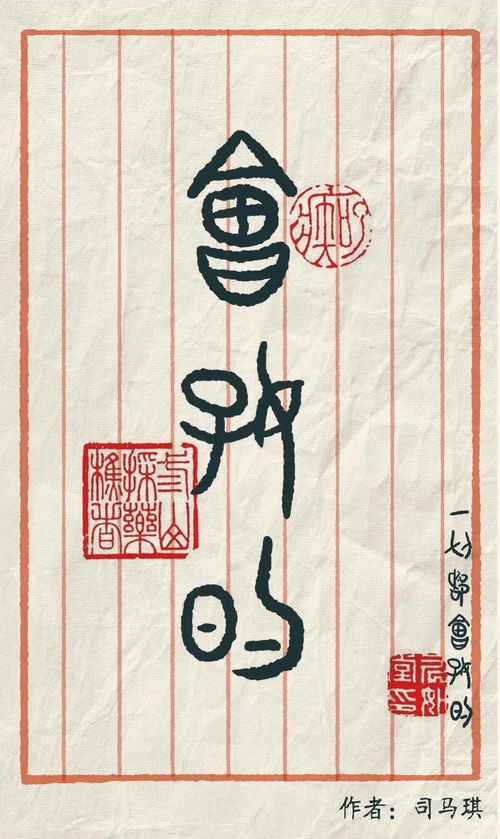 會好的
一切都會好的
作者：司马琪